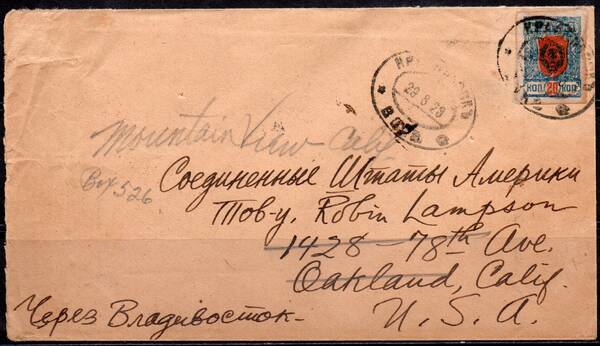 КОП 20 КОП
28 8 23
Mountain View Calif
Box 526
Соединенные Штаты Америки
Тов-у. Robin Lampson
1428-78th Ave.
Oakland, Calif.
Через Владивосток-
U. S. A.